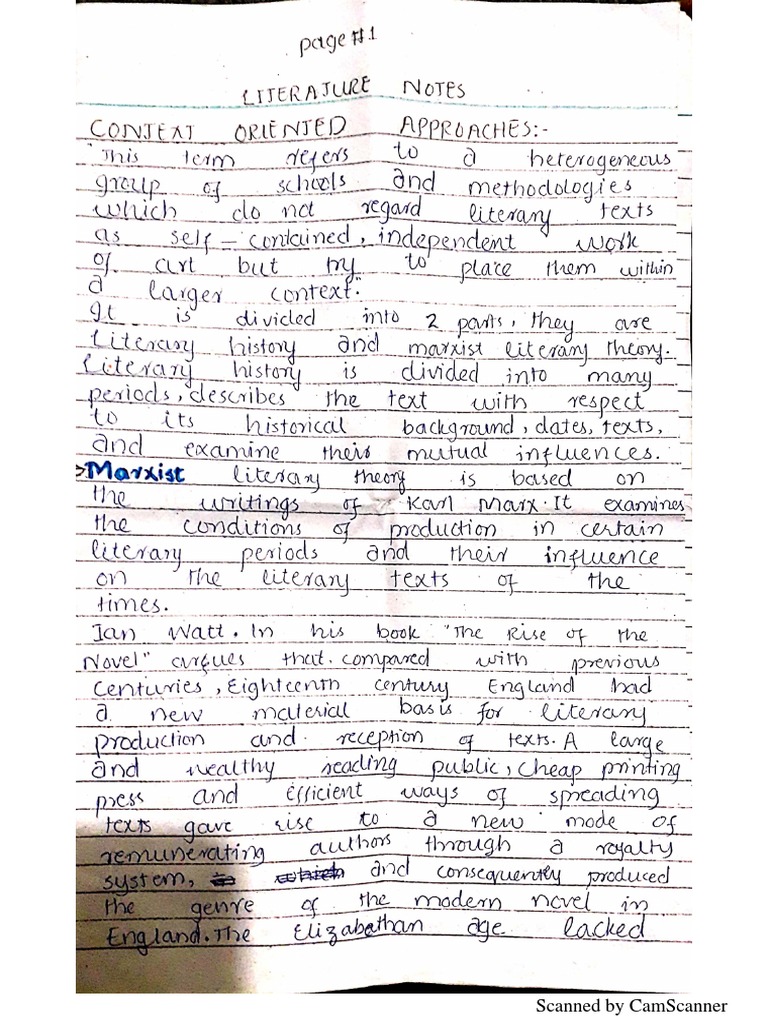 page #1
LITERATURE NOTES
CONTEXT ORIENTED APPROACHES:-
"This term refers to a heterogeneous
group of schools and methodologies
which do not regard literary texts
as self-contained, independent work
of art but try to place them within
a larger context."
It is divided into 2 parts, they are
Literary history and marxist literary theory.
Literary history is divided into many
periods, describes the text with respect
to its historical background, dates, texts,
and examine their mutual influences.
>Marxist literary theory is based on
the writings of Karl Marx. It examines
the conditions of production in certain
literary periods and their influence
on the literary texts of the
times.
Ian Watt. In his book "The Rise of the
Novel" argues that. compared with previous
centuries, Eighteenth century England had
a new material basis for literary
production and reception of texts. A large
and wealthy reading public, cheap printing
press and efficient ways of spreading
texts gave rise to a new mode of
remunerating authors through a royalty
system, and consequently produced
the genre of the modern novel in
England. The Elizabethan age lacked
Scanned by CamScanner